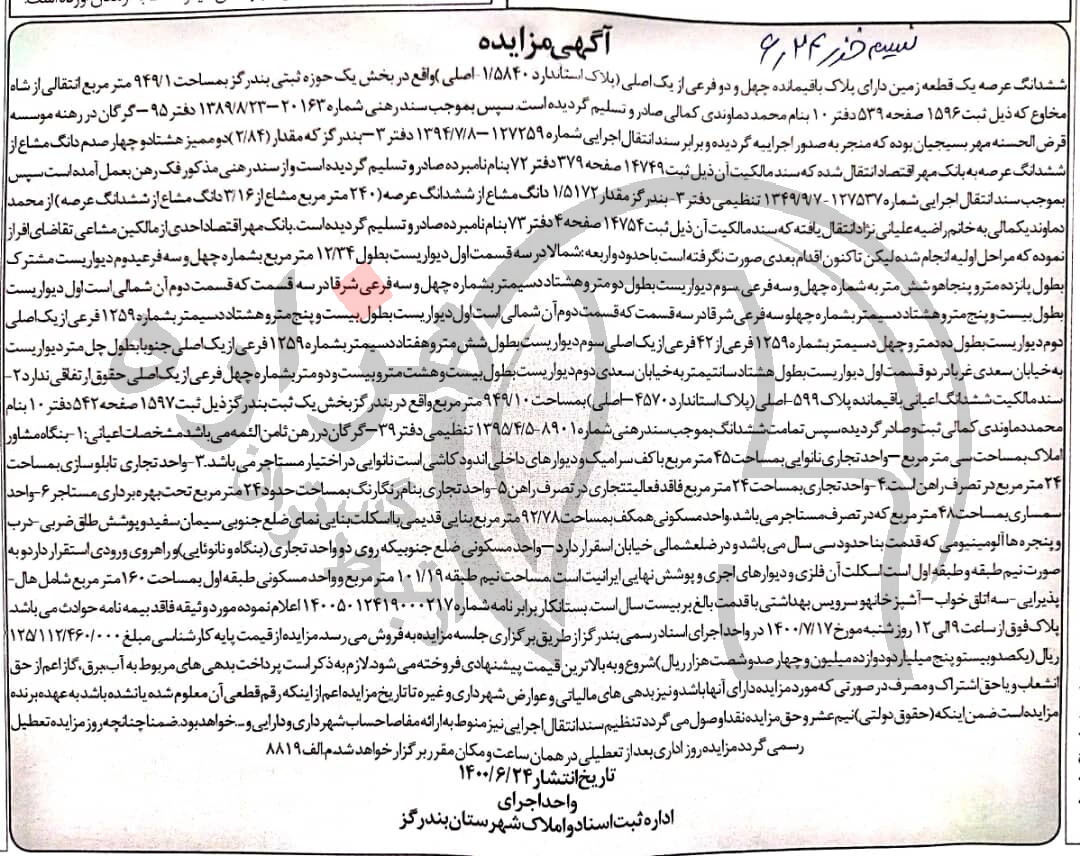 نسیم خزر ۲۴ر۶
آگهی مزایده
ششدانگ عرصه یک قطعه زمین دارای پلاک باقیمانده چهل و دو فرعی از یک اصلی (پلاک استاندارد ۱/۵۸۴۰-اصلی) واقع در بخش یک حوزه ثبتی بندرگز بمساحت ۹۴۹/۱ متر مربع انتقالی از شاه
مخاوع که ذیل ثبت ۱۵۹۶ صفحه ۵۳۹ دفتر ۱۰ بنام محمد دماوندی کمالی صادر و تسلیم گردیده است. سپس بموجب سند رهنی شماره ۲۰۱۶۳–۱۳۸۹/۸/۲۳ دفتر ۹۵– گرگان در رهنه موسسه
قرض الحسنه مهر بسیجیان بوده که منجر به صدور اجراییه گردیده و برابر سند انتقال اجرایی شماره ۱۲۷۲۵۹–۱۳۹۴/۷/۸ دفتر ۳–بندرگز که مقدار (۲/۸۴) دو ممیز هشتاد و چهار صدم دانگ مشاع از
ششدانگ عرصه به بانک مهر اقتصاد انتقال شده که سند مالکیت آن ذیل ثبت ۱۴۷۴۹ صفحه ۳۷۹ دفتر ۷۲ بنام نامبرده صادر و تسلیم گردیده است و از سند رهنی مذکور فک رهن بعمل آمده است سپس
بموجب سند انتقال اجرایی شماره ۱۲۷۵۳۷-۱۳۴۹/۹/۷ تنظیمی دفتر ۳- بندرگز مقدار ۱/۵۱۷۲ دانگ مشاع از ششدانگ عرصه (۲۴۰ متر مربع مشاع از ۳/۱۶ دانگ مشاع از ششدانگ عرصه) از محمد
دماوند یکمالی به خانم راضیه علیانی نژاد انتقال یافته که سند مالکیت آن ذیل ثبت ۱۴۷۵۴ صفحه ۴ دفتر ۷۳ بنام نامبرده صادر و تسلیم گردیده است. بانک مهر اقتصاد احدی از مالکین مشاعی تقاضای افراز
نموده که مراحل اولیه انجام شده لیکن تاکنون اقدام بعدی صورت نگرفته است با حدود اربعه: شمالا در سه قسمت اول دیواریست بطول ۱۲/۳۴ متر مربع بشماره چهل و سه فرعی دوم دیواریست مشترک
بطول پانزده متر و پنجاه و شش متر به شماره چهل و سه فرعی، سوم دیواریست بطول دو متر و هشتاد دسیمتر بشماره چهل و سه فرعی شرقا در سه قسمت که قسمت دوم آن شمالی است اول دیواریست
بطول بیست و پنج متر و هشتاد دسیمتر بشماره چهلو سه فرعی شرقا در سه قسمت که قسمت دوم آن شمالی است اول دیواریست بطول بیست و پنج متر و هشتاد دسیمتر بشماره ۱۲۵۹ فرعی از یک اصلی
دوم دیواریست بطول ده متر و چهل دسیمتر بشماره ۱۲۵۹ فرعی از ۴۲ فرعی از یک اصلی سوم دیواریست بطول شش متر و هفتاد دسیمتر بشماره ۱۲۵۹ فرعی از یک اصلی جنوبا بطول چل متر دیواریست
به خیابان سعدی غربا در دو قسمت اول دیواریست بطول هشتاد سانتیمتر به خیابان سعدی دوم دیواریست بطول بیست و هشت متر و بیست و دو متر بشماره چهل فرعی از یک اصلی حقوق ارتفاقی ندارد ۲-
سند مالکیت ششدانگ اعیانی باقیمانده پلاک ۵۹۹-اصلی (پلاک استاندارد ۴۵۷۰–اصلی) بمساحت ۹۴۹/۱۰ متر مربع واقع در بندرگز بخش یک ثبت بندرگز ذیل ثبت ۱۵۹۷ صفحه ۵۴۲ دفتر ۱۰ بنام
محمد دماوندی کمالی ثبت و صادر گردیده سپس تمامت ششدانگ بموجب سند رهنی شماره ۸۹۰۱-۱۳۹۵/۴/۵ تنظیمی دفتر ۳۹– گرگان در رهن ثامن الئمه می باشد مشخصات اعیانی: ۱- بنگاه مشاور
املاک بمساحت سی متر مربع –واحد تجاری نانوایی بمساحت ۴۵ متر مربع با کف سرامیک و دیوارهای داخلی اندود کاشی است نانوایی در اختیار مستاجر می باشد. ۳-واحد تجاری تابلوسازی بمساحت
۲۴ متر مربع در تصرف راهن است. ۴-واحد تجاری بمساحت ۲۴ متر مربع فاقد فعالیتتجاری در تصرف راهن ۵-واحد تجاری بنام رنگارنگ بمساحت حدود ۲۴ متر مربع تحت بهره برداری مستاجر ۶-واحد
سمساری بمساحت ۴۸ متر مربع که در تصرف مستاجر می باشد. واحد مسکونی همکف بمساحت ۹۲/۷۸ متر مربع بنایی قدیمی با اسکلت بنایی نمای ضلع جنوبی سیمان سفید و پوشش طاق ضربی-درب
و پنجره ها آلومینیومی که قدمت بنا حدود سی سال می باشد و در ضلعشمالی خیابان اسقرار دارد –واحد مسکونی ضلع جنوبیکه روی دو واحد تجاری (بنگاه و نانوئایی) و راهروی ورودی استقرار دارد و به
صورت نیم طبقه و طبقه اول است اسکلت آن فلزی و دیوارهای اجری و پوشش نهایی ایرانیت است. مساحت نیم طبقه ۱۰۱/۱۹ متر مربع و واحد مسکونی طبقه اول بمساحت ۱۶۰ متر مربع شامل هال-
پذیرایی-سه اتاق خواب–آشپز خانهو سرویس بهداشتی با قدمت بالغ بر بیست سال است. بستانکار برابر نامه شماره ۱۴۰۰۵۰۱۲۴۱۹۰۰۰۲۱۷ اعلام نموده مورد وثیقه فاقد بیمه نامه حوادث می باشد
پلاک فوق از ساعت ۹ الی ۱۲ روز شنبه مورخ ۱۴۰۰/۷/۱۷ در واحد اجرای اسناد رسمی بندرگز از طریق برگزاری جلسه مزایده به فروش می رسد. مزایده از قیمت پایه کارشناسی مبلغ ۱۲۵/۱۱۲/۴۶۰/۰۰۰
ریال (یکصد و بیست و پنج میلیارد و دوازده میلیون و چهار صد و شصت هزار ریال) شروع و به بالاترین قیمت پیشنهادی فروخته می شود. لازم به ذکر است پرداخت بدهی های مربوط به آب، برق، گاز اعم از حق
انشعاب و یا حق اشتراک و مصرف در صورتی که مورد مزایده دارای آنها باشد و نیز بدهی های مالیاتی و عوارض شهرداری و غیره تا تاریخ مزایده اعم از اینکه رقم قطعی آن معلوم شده یا نشده باشد به عهده برنده
مزایده است ضمن اینکه (حقوق دولتی) نیم عشر و حق مزایده نقدا وصول می گردد تنظیم سند انتقال اجرایی نیز منوط به ارائه مفاصا حساب شهرداری و دارایی و... خواهد بود. ضمنا چنانچه روز مزایده تعطیل
رسمی گردد مزایده روز اداری بعد از تعطیلی در همان ساعت و مکان مقرر برگزار خواهد شد م الف ۸۸۱۹
تاریخ انتشار ۱۴۰۰/۶/۲۴
واحد اجرای
اداره ثبت اسناد و املاک شهرستان بندرگز